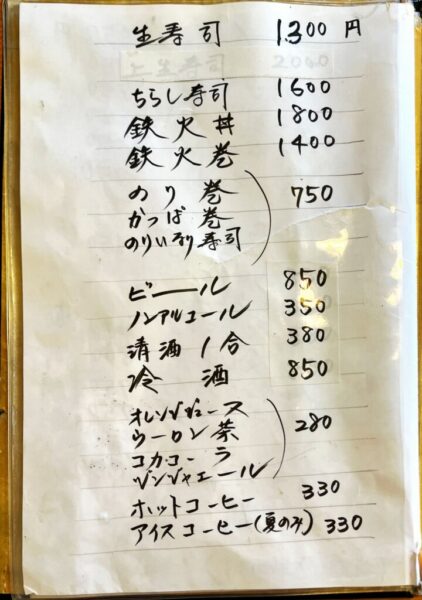 生寿司 1300円
上生寿司 2000
ちらし寿司 1600
鉄火丼 1800
鉄火巻 1400
のり巻
かっぱ巻 750
のりいなり寿司
ビール 850
ノンアルコール 350
清酒1合 380
冷酒 850
オレンジジュース
ウーロン茶 280
コカコーラ
ジンジャエール
ホットコーヒー 330
アイスコーヒー(夏のみ) 330